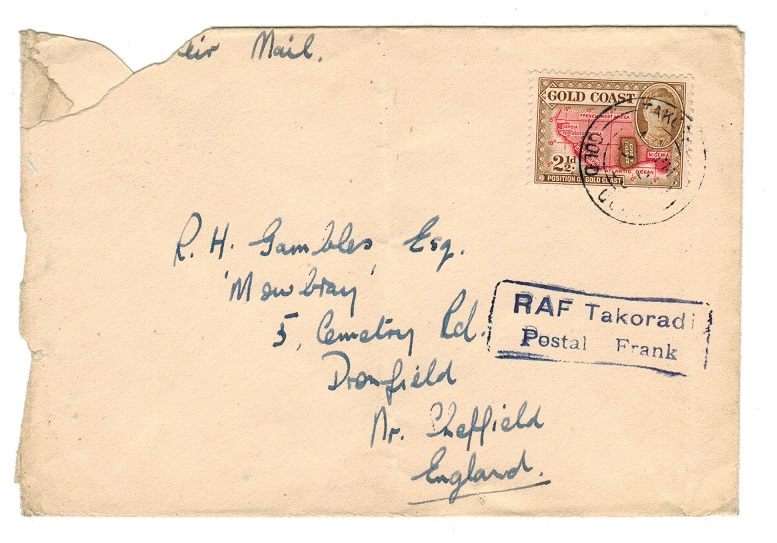 Air Mail.
GOLD COAST
FRENCH WEST AFRICA
GAMBIA
NIGERIA
ATLANTIC OCEAN
2½d.
POSITION OF GOLD COAST
GOLD
R. H. Gambles, Esq.
'Mowbray'
5, Cemetry Rd.
Dronfield
Nr. Sheffield
England.
RAF Takoradi
Postal Frank